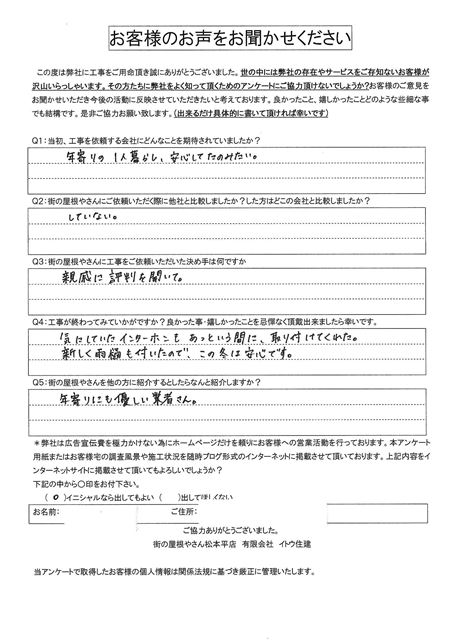 お客様のお声をお聞かせください
この度は弊社に工事をご用命頂き誠にありがとうございました。世の中には弊社の存在やサービスをご存知ないお客様が
沢山いらっしゃいます。その方たちに弊社をよく知って頂くためのアンケートにご協力頂けないでしょうか?お客様のご意見を
お聞かせいただき今後の活動に反映させていただきたいと考えております。良かったこと、嬉しかったことどのような些細な事
でも結構です。是非ご協力お願い致します。(出来るだけ具体的に書いて頂ければ幸いです)
Q1:当初、工事を依頼する会社にどんなことを期待されていましたか?
年寄りの1人暮らし、安心してたのみたい。
Q2:街の屋根やさんにご依頼いただく際に他社と比較しましたか?した方はどこの会社と比較しましたか?
していない。
Q3:街の屋根やさんに工事をご依頼いただいた決め手は何ですか
親戚に評判を聞いて。
Q4:工事が終わってみていかがですか?良かった事・嬉しかったことを忌憚なく頂戴出来ましたら幸いです。
気にしていたインターホンもあっという間に、取り付けてくれた。
新しく雨樋も付いたので、この冬は安心です。
Q5:街の屋根やさんを他の方に紹介するとしたらなんと紹介しますか?
年寄りにも優しい業者さん。
*弊社は広告宣伝費を極力かけない為にホームページだけを頼りにお客様への営業活動を行っております。本アンケート
用紙またはお客様宅の調査風景や施工状況を随時ブログ形式のインターネットに掲載させて頂いております。上記内容をイ
ンターネットサイトに掲載させて頂いてもよろしいでしょうか?
下記の中から○印をお付下さい。
(○)イニシャルなら出してもよい ( )出してほしくない
お名前: ご住所:
ご協力ありがとうございました。
街の屋根やさん松本平店 有限会社 イトウ住建
当アンケートで取得したお客様の個人情報は関係法規に基づき厳正に管理いたします。